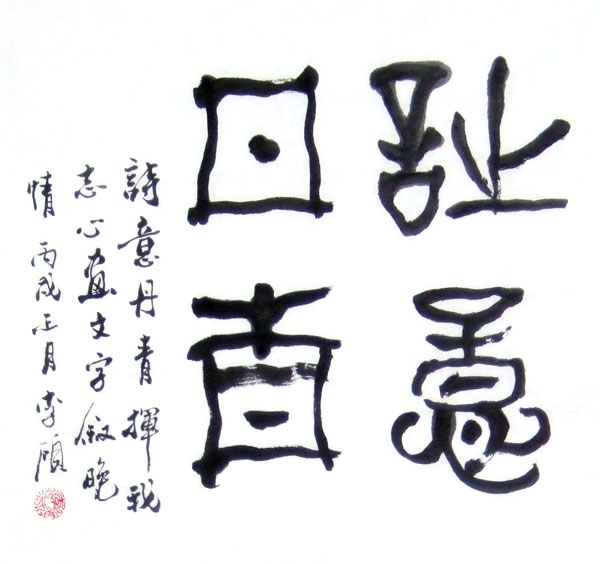 詩意
丹青
詩意丹青揮我
志心畫文字敘晚
情 丙戌正月 李